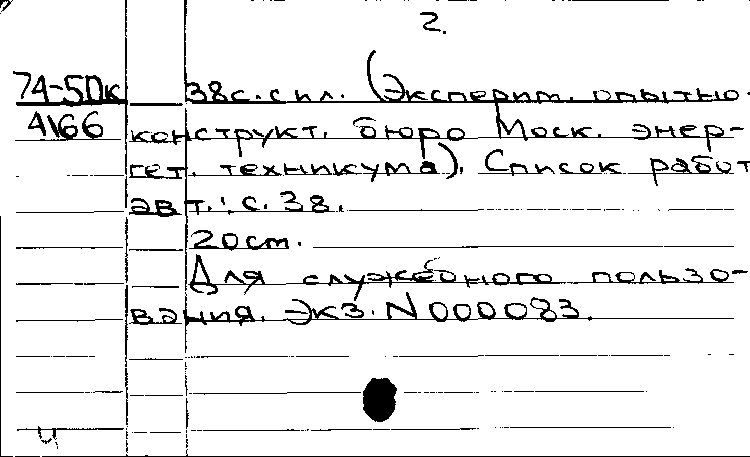 2.
74-5Дк 38с. с ил. (Эксперим. опытно-
4166 конструкт. бюро Моск. энер-
гет. техникума). Список работ
авт.: с. 38.
20 см.
Для служебного пользо-
вания. Экз. N 000083.
Ч